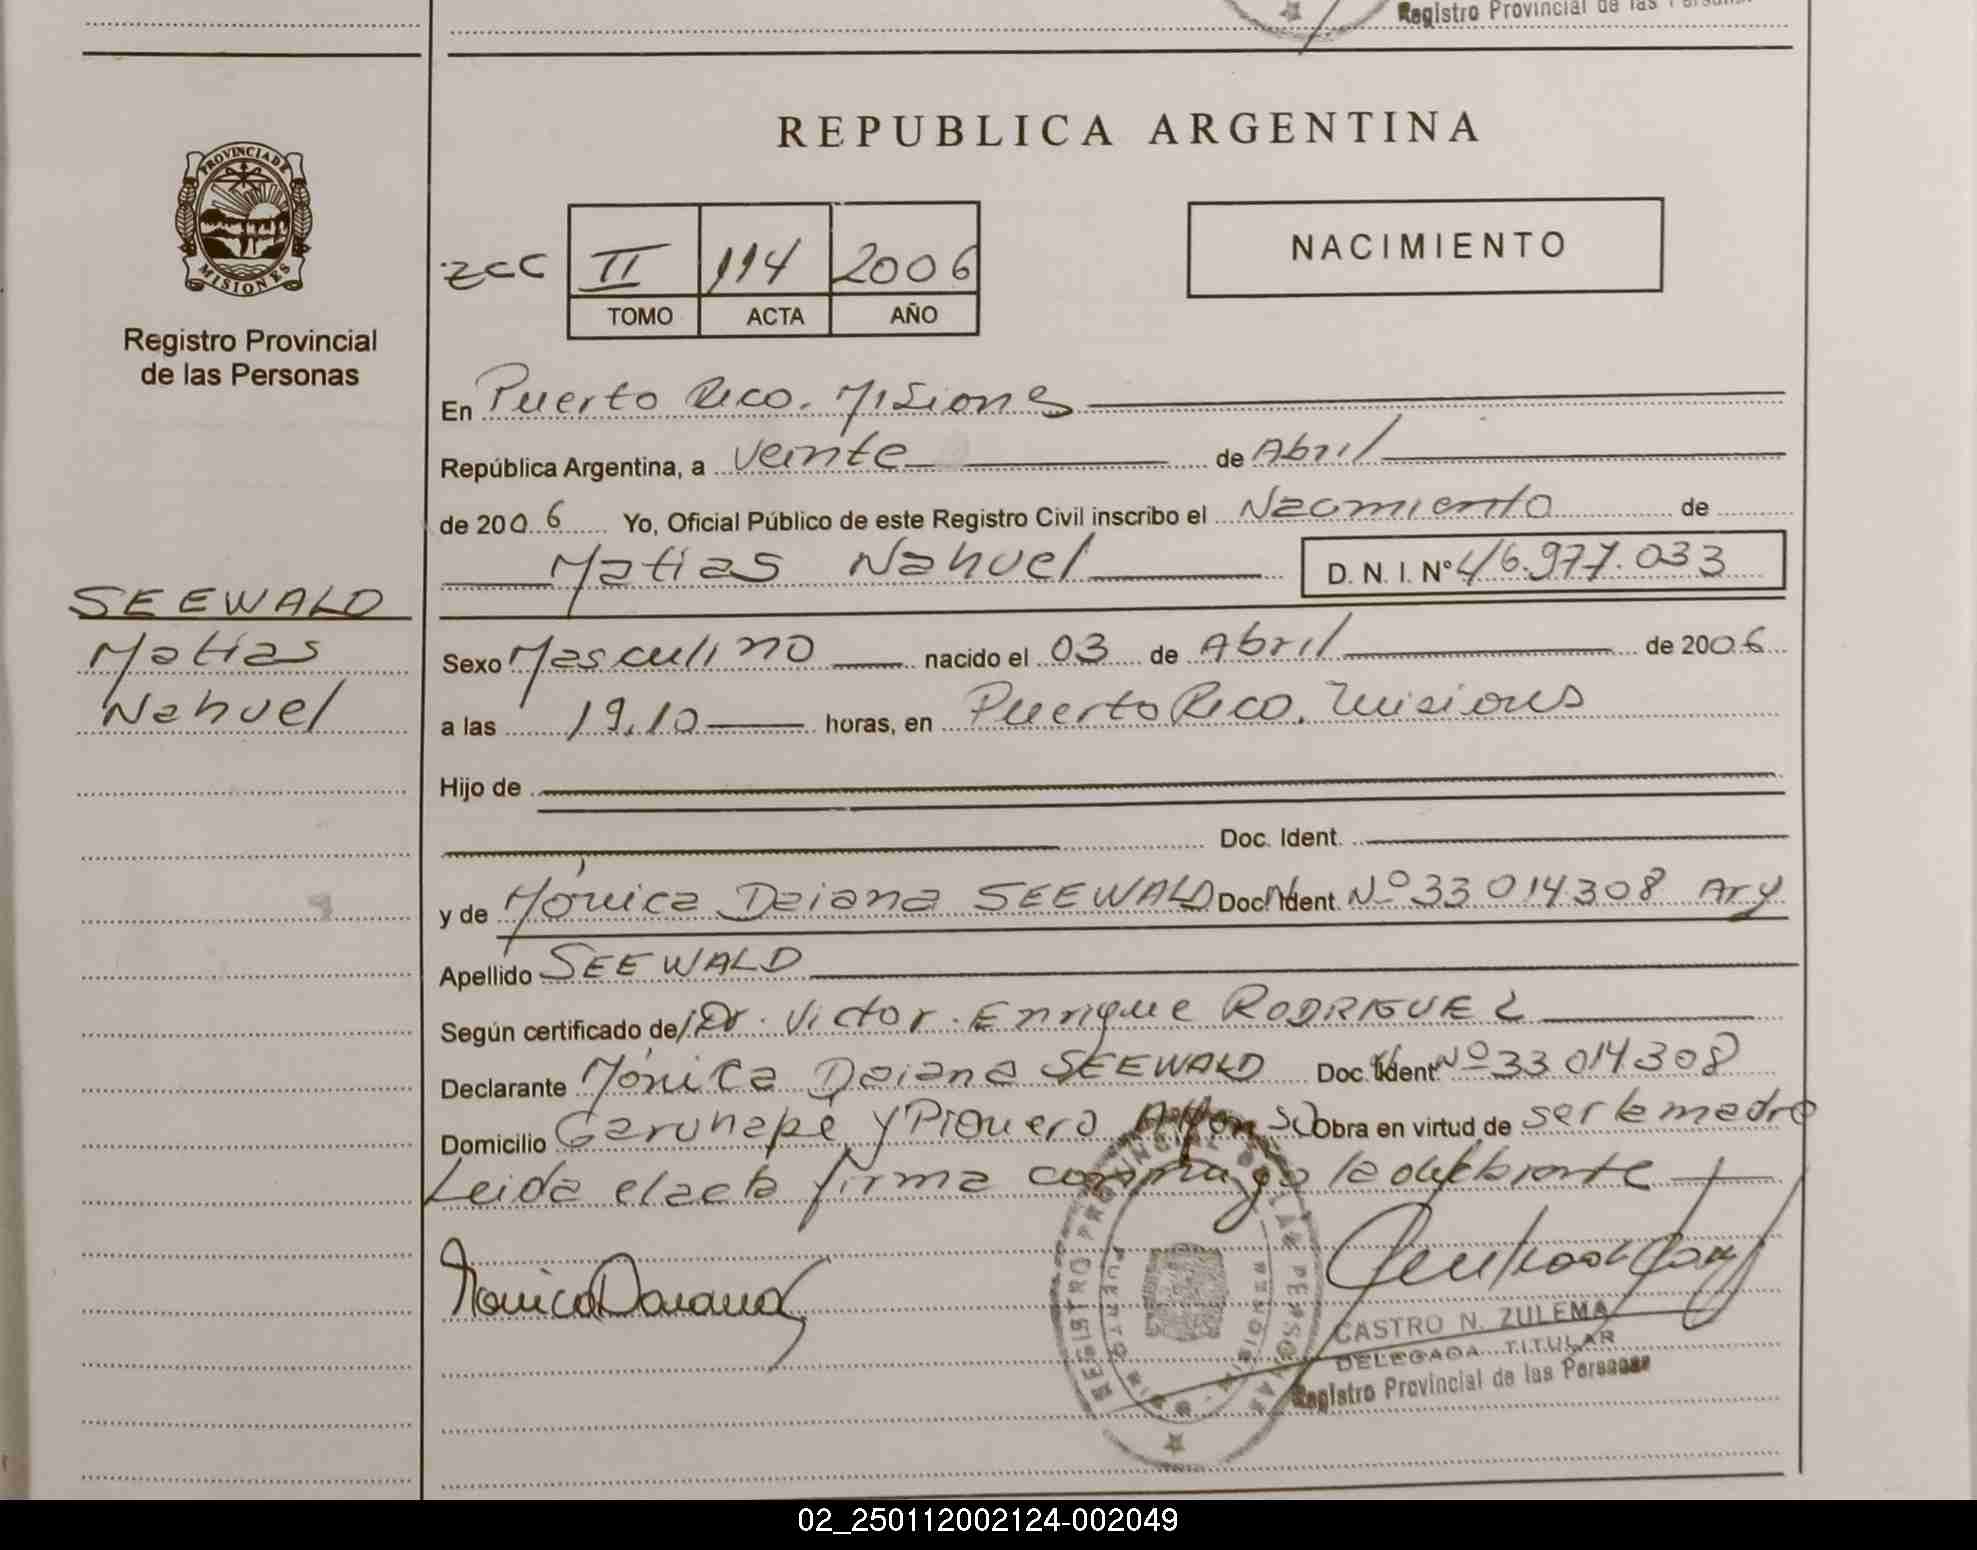 Registro Provincial de las
REPUBLICA ARGENTINA
PROVINCIA DE
MISIONES
Registro Provincial
de las Personas
zcc II 114 2006
TOMO ACTA AÑO
NACIMIENTO
En Puerto Rico. Misiones
República Argentina, a veinte de Abril
de 2006 Yo, Oficial Público de este Registro Civil inscribo el Nacimiento de
Matias Nahuel D. N. I. Nº 46.977.033
SEEWALD
Matias
Nahuel
Sexo Masculino nacido el 03 de Abril de 2006
a las 19.10 horas, en Puerto Rico. Misiones
Hijo de
Doc. Ident.
y de Mónica Daiana SEEWALD Doc. Ident. Nº 33 014.308 Arg
Apellido SEEWALD
Según certificado de Dr. Victor Enrique RODRIGUEZ
Declarante Mónica Daiana SEEWALD Doc. Ident. Nº 33 014308
Domicilio Garuhapé y Piquero Obra en virtud de ser la madre
Leida el acta firma conmigo la declarante
Monica Daiana
REGISTRO PROVINCIAL DE LAS PERSONAS
PUERTO RICO
MISIONES
CASTRO N. ZULEMA
DELEGADA TITULAR
Registro Provincial de las Personas
02_250112002124-002049